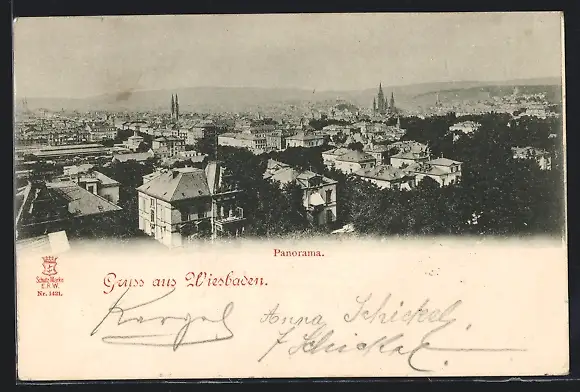 Panorama.
Schutz-Marke
E.R.W.
Nr. 1421.
Gruss aus Wiesbaden.
Anna Schickel
Schickel